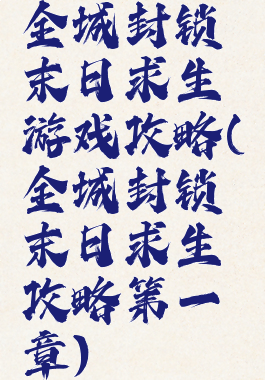 全城封锁
末日求生
游戏攻略(
全城封锁
末日求生
攻略第一
章)